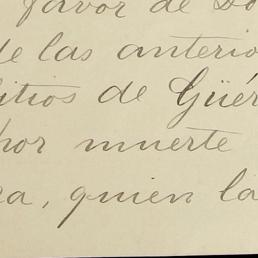 favor de Do
de las anterio
itios de Güér
por muerte
ca, quien la